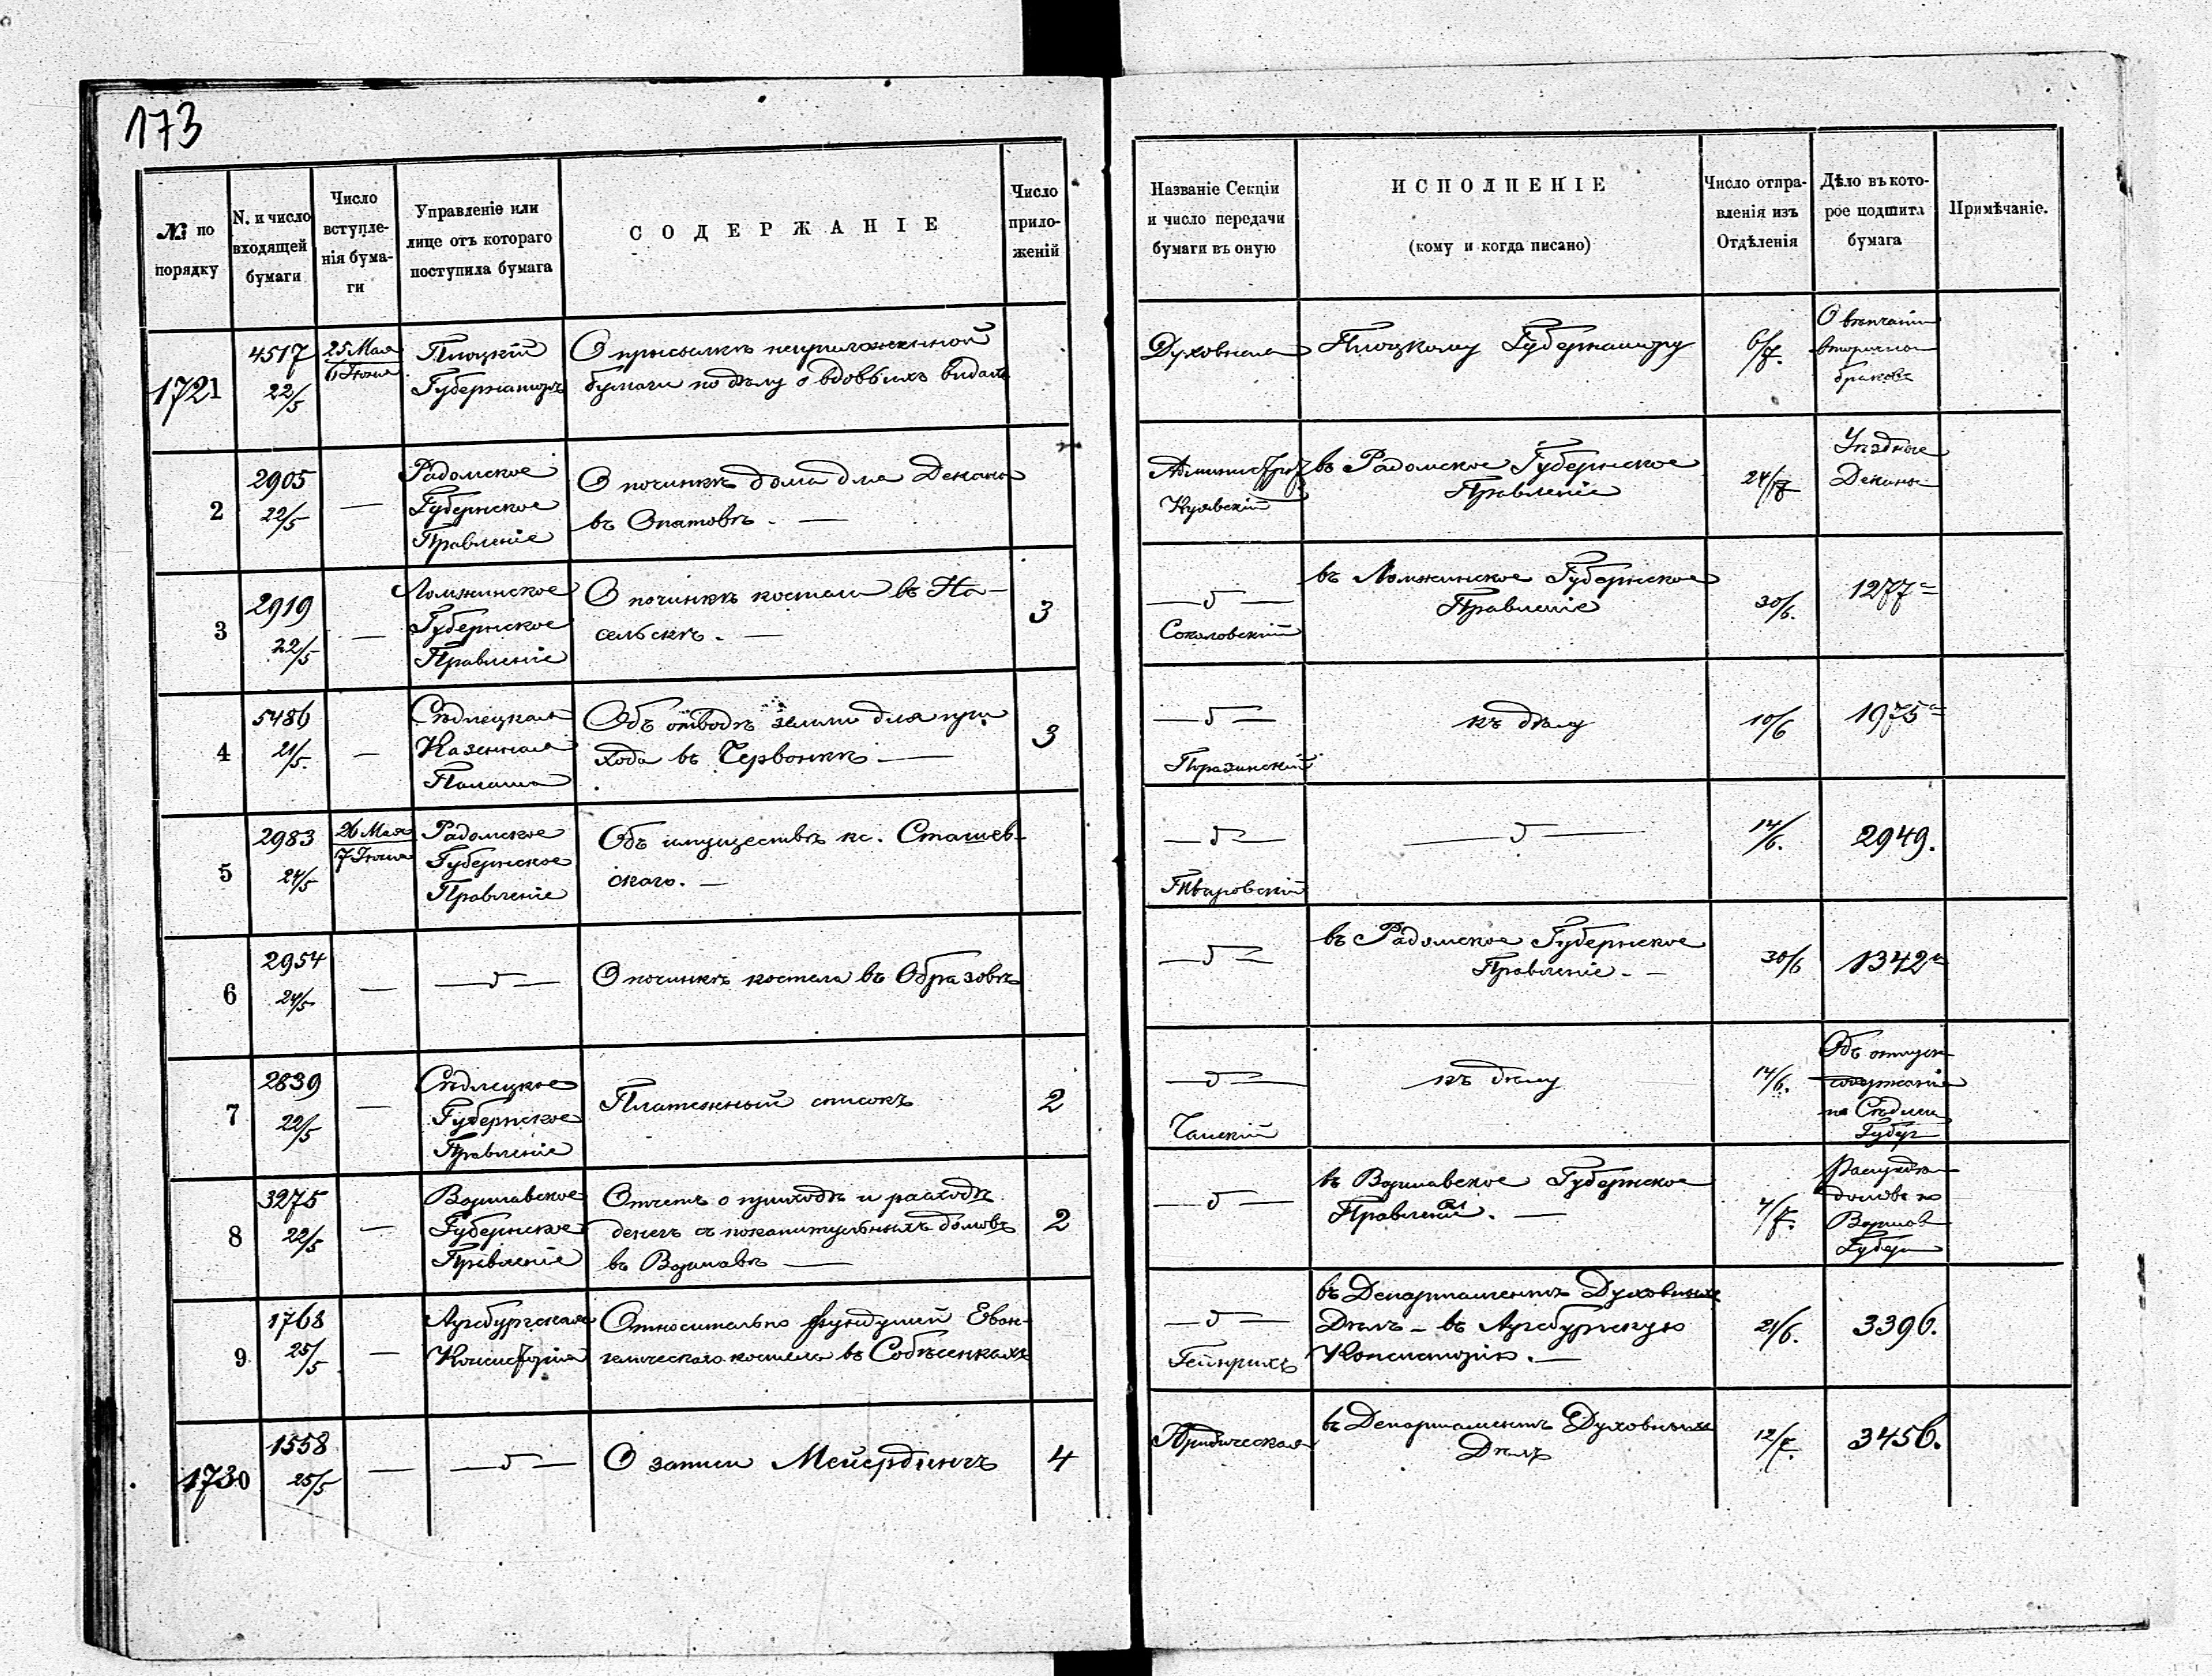 173
№ по порядку
N. и число входящей бумаги
Число вступле-нія бума-ги
Управленіе или лице отъ котораго поступила бумага
СОДЕРЖАНІЕ
Число прило-женій
Названіе Секціи и число передачи бумаги въ оную
ИСПОЛНЕНІЕ
(кому и когда писано)
Число отпра-вленія изъ Отдѣленія
Дѣло въ кото-рое подшита бумага
Примѣчаніе.
1721
4517
22/5
25 Мая
6 Іюня
Плоцкій
Губернаторъ
О присылкѣ неприложенной
бумаги по дѣлу о вдовьихъ видахъ
Духовная
Плоцкому Губернатору
6/7.
О вѣнчаніи
вторичн
браковъ
2
2905
22/5
—
Радомское
Губернское
Правленіе
О починкѣ дома для Декана
въ Опатовѣ. —
Куявскій
въ Радомское Губернское
Правленіе
24/7
Уѣздные
Деканы
3
2919
22/5
—
Ломжинское
Губернское
Правленіе
О починкѣ костела въ На-
сельскѣ. —
3
Соколовскій
въ Ломжинское Губернское
Правленіе
30/6.
1277
4
5486
21/5.
—
Сѣдлецкая
Казенная
Палата
Объ отводѣ земли для при
хода въ Червонкѣ —
3
къ дѣлу
10/6
1975
5
2983
24/5
26 Мая
7 Іюня
Радомское
Губернское
Правленіе
Объ имуществѣ кс. Сташев-
скаго. —
14/6.
2949.
6
2954
24/5
—
О починкѣ костела въ Образовѣ
въ Радомское Губернское
Правленіе. —
30/6
1342
7
2839
22/5
—
Сѣдлецкое
Губернское
Правленіе
Платежный списокъ
2
Чапскій
къ дѣлу
14/6.
Объ отпускѣ
содержанія
по Сѣдлец
Губер
8
3275
22/5
—
Варшавское
Губернское
Правленіе
Отчетъ о приходѣ и расходѣ
денегъ съ покапитульныхъ домовъ
въ Варшавѣ —
2
въ Варшавское Губернское
Правленіе. —
4/7.
домовъ по
Варшав
Губерн
9
1768
25/5
—
Аугсбургская
Консисторія
Относительно фундушей Еван-
гелическаго костела въ Собѣсенкахъ
Гейнрихъ
въ Департаментъ Духовныхъ
Дѣлъ — въ Аугсбургскую
Консисторію. —
21/6.
3396.
1730
1558
25/5
—
О записи Мейердингъ
4
Юридическая
въ Департаментъ Духовныхъ
Дѣлъ
12/7.
3456.